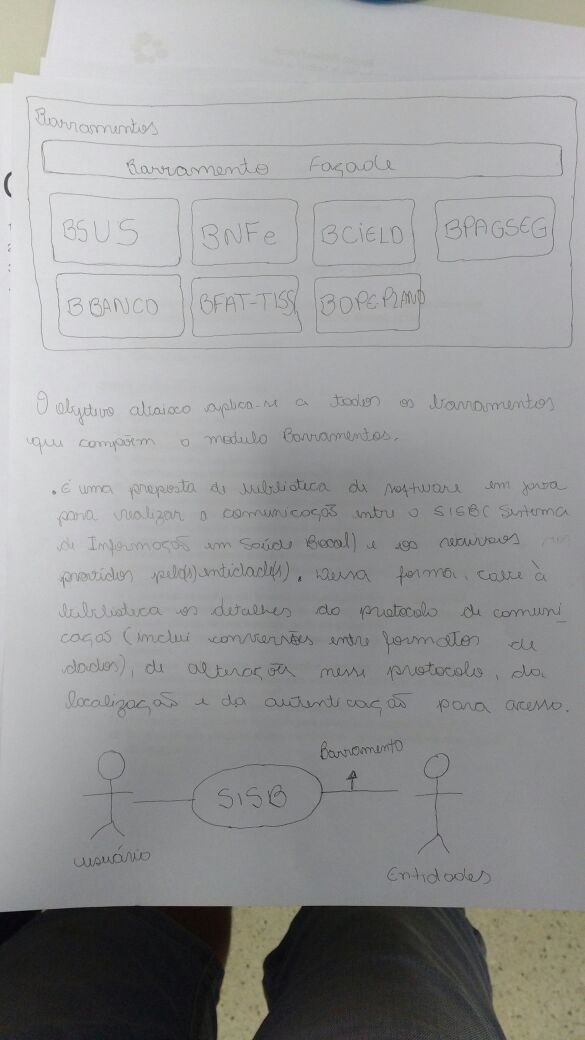 Barramentos
Barramento Façade
BSUS BNFe BCIELO BPAGSEG
BBANCO BFAT-TISS BOPEPLANO
O objetivo abaixo aplica-se a todos os barramentos
que compõem o modulo Barramentos.
. É uma proposta de biblioteca de software em java
para realizar a comunicação entre o SISB( Sistema
de Informação em Saúde Bocal) e os recursos
providos pela(s) entidade(s). Dessa forma, cabe à
biblioteca os detalhes do protocolo de comuni
cação (inclui conversões entre formatos de
dados), de alteração nesse protocolo, da
localização e da autenticação para acesso.
Barramento
SISB
usuário
Entidades